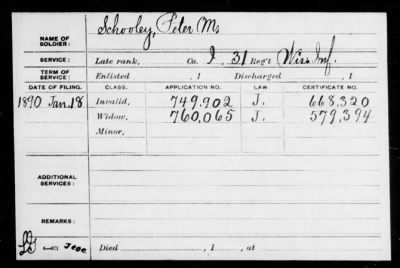 NAME OF SOLDIER: Schooley, Peter M.
SERVICE: Late rank, Co. I, 31 Reg't Wis. Inf.
TERM OF SERVICE: Enlisted , 1 Discharged , 1
DATE OF FILING. CLASS. APPLICATION NO. LAW CERTIFICATE NO.
1890 Jan. 18 Invalid, 749.902 J. 668,320
Widow, 760,065 J. 579,394
Minor,
ADDITIONAL SERVICES:
REMARKS:
Died , 1 , at